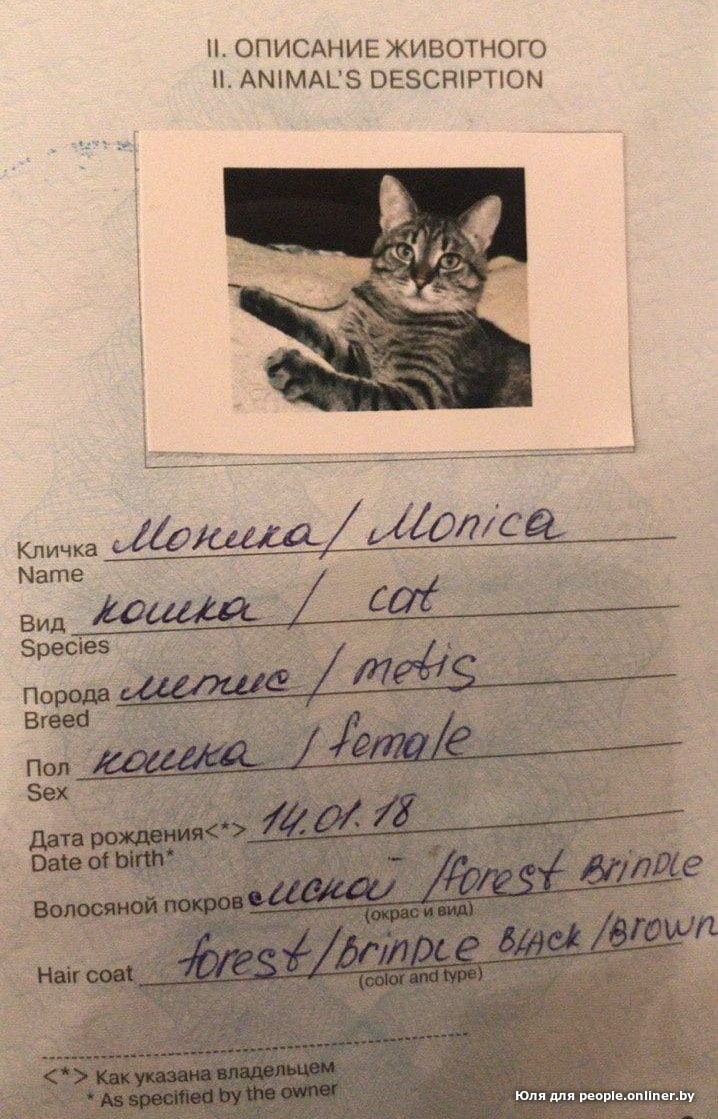 II. ОПИСАНИЕ ЖИВОТНОГО
II. ANIMAL'S DESCRIPTION
Кличка Моника / Monica
Name
Вид кошка / cat
Species
Порода метис / metis
Breed
Пол кошка / female
Sex
Дата рождения<*> 14.01.18
Date of birth*
Волосяной покров лесной /forest Brindle
(окрас и вид)
Hair coat forest/Brindle Black/Brown
(color and type)
<*> Как указана владельцем
* As specified by the owner
Юля для people.onliner.by